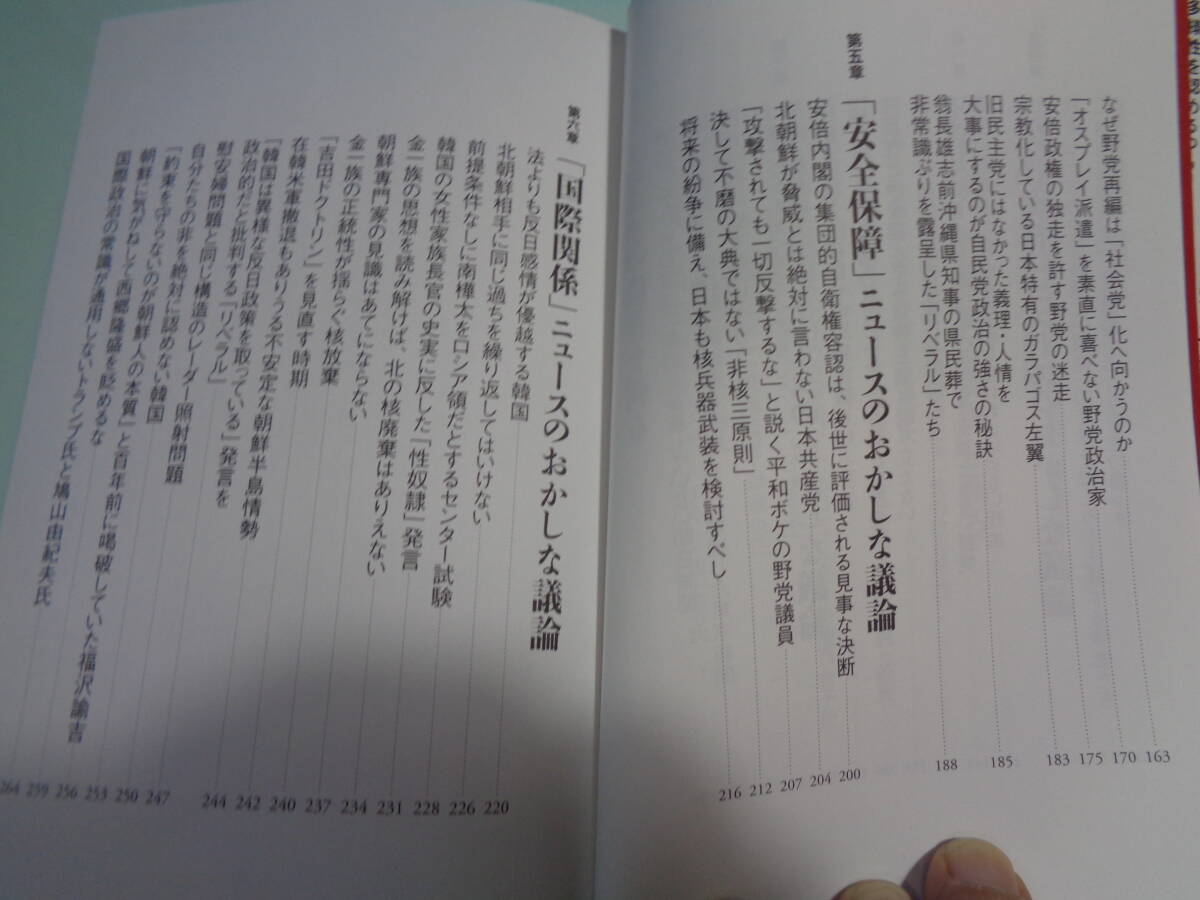 なぜ野党再編は「社会党」化へ向かうのか 163
「オスプレイ派遣」を素直に喜べない野党政治家 170
安倍政権の独走を許す野党の迷走 175
宗教化している日本特有のガラパゴス左翼 183
旧民主党にはなかった義理・人情を
大事にするのが自民党政治の強さの秘訣 185
翁長雄志前沖縄県知事の県民葬で
非常識ぶりを露呈した「リベラル」たち 188
第五章 「安全保障」ニュースのおかしな議論
安倍内閣の集団的自衛権容認は、後世に評価される見事な決断 200
北朝鮮が脅威とは絶対に言わない日本共産党 204
「攻撃されても一切反撃するな」と説く平和ボケの野党議員 207
決して不磨の大典ではない「非核三原則」 212
将来の紛争に備え、日本も核兵器武装を検討すべし 216
第六章 「国際関係」ニュースのおかしな議論
法よりも反日感情が優越する韓国 220
北朝鮮相手に同じ過ちを繰り返してはいけない 226
前提条件なしに南樺太をロシア領だとするセンター試験 228
韓国の女性家族長官の史実に反した「性奴隷」発言 231
金一族の思想を読み解けば、北の核廃棄はありえない 234
朝鮮専門家の見識はあてにならない 237
金一族の正統性が揺らぐ核放棄 240
「吉田ドクトリン」を見直す時期 242
在韓米軍撤退もありうる不安定な朝鮮半島情勢 244
「韓国は異様な反日政策を取っている」発言を
政治的だと批判する「リベラル」 247
慰安婦問題と同じ構造のレーダー照射問題 250
自分たちの非を絶対に認めない韓国 253
「約束を守らないのが朝鮮人の本質」と百年前に喝破していた福沢諭吉 256
朝鮮に気がねして西郷隆盛を貶めるな 259
国際政治の常識が通用しないトランプ氏と鳩山由紀夫氏 264